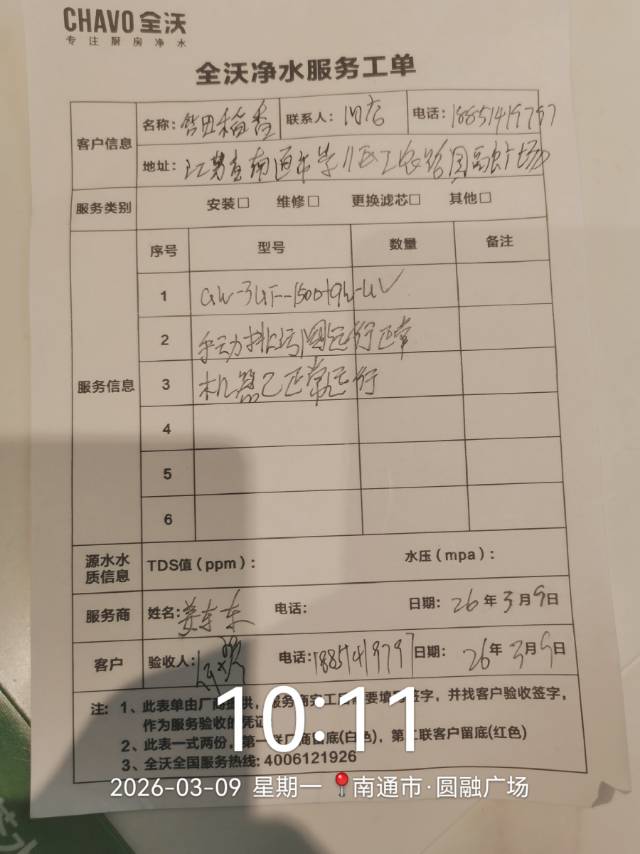 CHAVO 全沃
专注厨房净水
全沃净水服务工单
客户信息
名称: 稻香 联系人: 电话: 18851419797
地址: 江苏省南通市崇川区工农路圆融广场
服务类别 安装□ 维修□ 更换滤芯□ 其他□
服务信息
序号 型号 数量 备注
1
2 手动排污阀运行正常
3 机器已正常运行
4
5
6
源水水质信息 TDS值（ppm）: 水压（mpa）:
服务商 姓名: 姜东东 电话: 日期: 26年3月9日
客户 验收人: 电话: 18851419797 日期: 26年3月9日
注: 1、此表单由厂商提供，服务商完工后需要填写签字，并找客户验收签字，
作为服务验收的凭证
2、此表一式两份，第一联厂商留底(白色)，第二联客户留底(红色)
3、全沃全国服务热线: 4006121926
10:11
2026-03-09 星期一 南通市·圆融广场